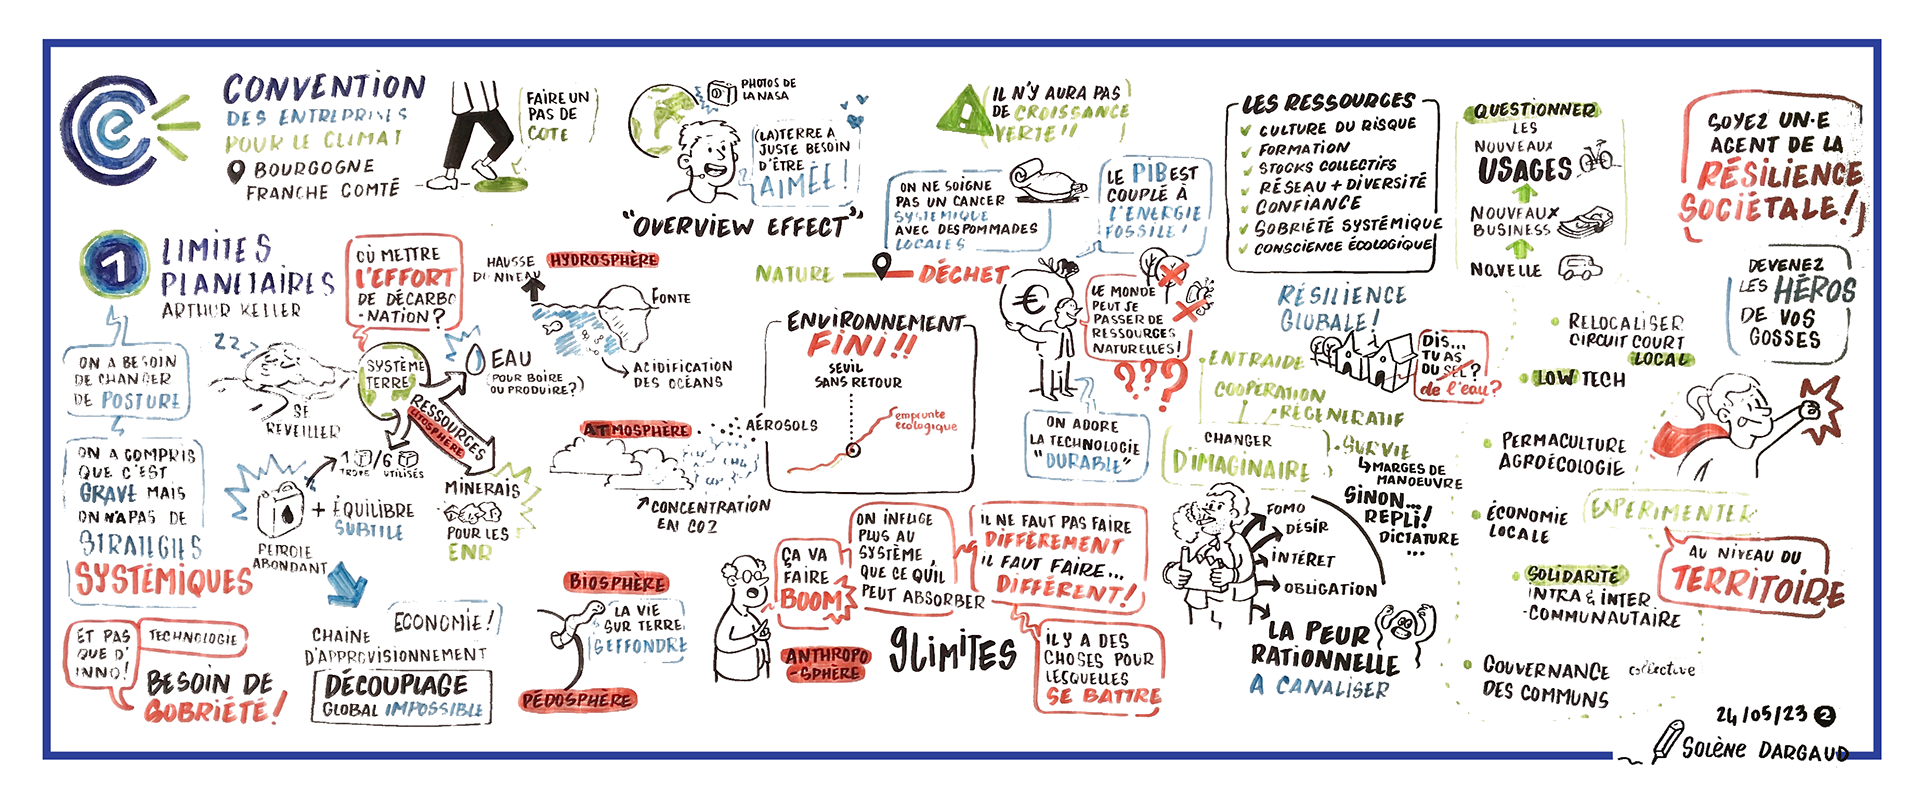 CONVENTION
DES ENTREPRISES
POUR LE CLIMAT
BOURGOGNE
FRANCHE COMTÉ
FAIRE UN
PAS DE
COTE
PHOTOS DE
LA NASA
(LA) TERRE A
JUSTE BESOIN
D'ÊTRE
AIMÉE!
"OVERVIEW EFFECT"
IL N'Y AURA PAS
DE CROISSANCE
VERTE!!
ON NE SOIGNE
PAS UN CANCER
SYSTEMIQUE
AVEC DES POMMADES
LOCALES
LE PIB EST
COUPLÉ À
L'ENERGIE
FOSSILE!
LES RESSOURCES
CULTURE DU RISQUE
FORMATION
STOCKS COLLECTIFS
RÉSEAU + DIVERSITÉ
CONFIANCE
SOBRIÉTÉ SYSTÉMIQUE
CONSCIENCE ÉCOLOGIQUE
QUESTIONNER
LES
NOUVEAUX
USAGES
NOUVEAUX
BUSINESS
SOYEZ UN·E
AGENT DE LA
RÉSILIENCE
SOCIÉTALE!
1
LIMITES
PLANETAIRES
ARTHUR KELLER
ON A BESOIN
DE CHANGER
DE POSTURE
ON A COMPRIS
QUE C'EST
GRAVE MAIS
ON N'A PAS DE
STRATEGIES
SYSTÉMIQUES
ET PAS
QUE D'
INNO!
TECHNOLOGIE
BESOIN DE
SOBRIÉTÉ!
OÙ METTRE
L'EFFORT
DE DÉCARBO
-NATION?
ZZZ
SE
REVEILLER
SYSTÈME
TERRE
EAU
(POUR BOIRE
OU PRODUIRE?)
RESSOURCES
LITOSPHÈRE
1 TROUVÉ / 6 UTILISÉS
PETROLE
ABONDANT
+ ÉQUILIBRE
SUBTILE
MINERAIS
POUR LES
ENR
ECONOMIE!
CHAÎNE
D'APPROVISIONNEMENT
DÉCOUPLAGE
GLOBAL IMPOSSIBLE
HAUSSE
DU NIVEAU
HYDROSPHÈRE
FONTE
ACIDIFICATION
DES OCÉANS
ATMOSPHÈRE
AÉROSOLS
CONCENTRATION
EN CO2
BIOSPHÈRE
LA VIE
SUR TERRE
S'EFFONDRE
PÉDOSPHÈRE
NATURE
DÉCHET
ENVIRONNEMENT
FINI!!
SEUIL
SANS RETOUR
emprunte
écologique
€
LE MONDE
PEUT SE
PASSER DE
RESSOURCES
NATURELLES!
???
ON ADORE
LA TECHNOLOGIE
"DURABLE"
ÇA VA
FAIRE
BOOM
ON INFLIGE
PLUS AU
SYSTÈME
QUE CE QU'IL
PEUT ABSORBER
ANTHROPO
-SPHÈRE
9 LIMITES
IL NE FAUT PAS FAIRE
DIFFÉREMENT
IL FAUT FAIRE...
DIFFÉRENT!
IL Y A DES
CHOSES POUR
LESQUELLES
SE BATTRE
RÉSILIENCE
GLOBALE!
DIS...
TU AS
DU SEL?
de l'eau?
ENTRAIDE
COOPÉRATION
RÉGENERATIF
CHANGER
D'IMAGINAIRE
SURVIE
MARGES DE
MANOEUVRE
SINON...
REPLI!
DICTATURE
...
FOMO
DÉSIR
INTÉRET
OBLIGATION
LA PEUR
RATIONNELLE
A CANALISER
RELOCALISER
CIRCUIT COURT
LOCAL
LOW TECH
PERMACULTURE
AGROÉCOLOGIE
ÉCONOMIE
LOCALE
EXPERIMENTER
AU NIVEAU DU
TERRITOIRE
SOLIDARITÉ
INTRA & INTER
-COMMUNAUTAIRE
GOUVERNANCE collective
DES COMMUNS
DEVENEZ
LES HÉROS
DE VOS
GOSSES
24/05/23 2
SOLÈNE DARGAUD